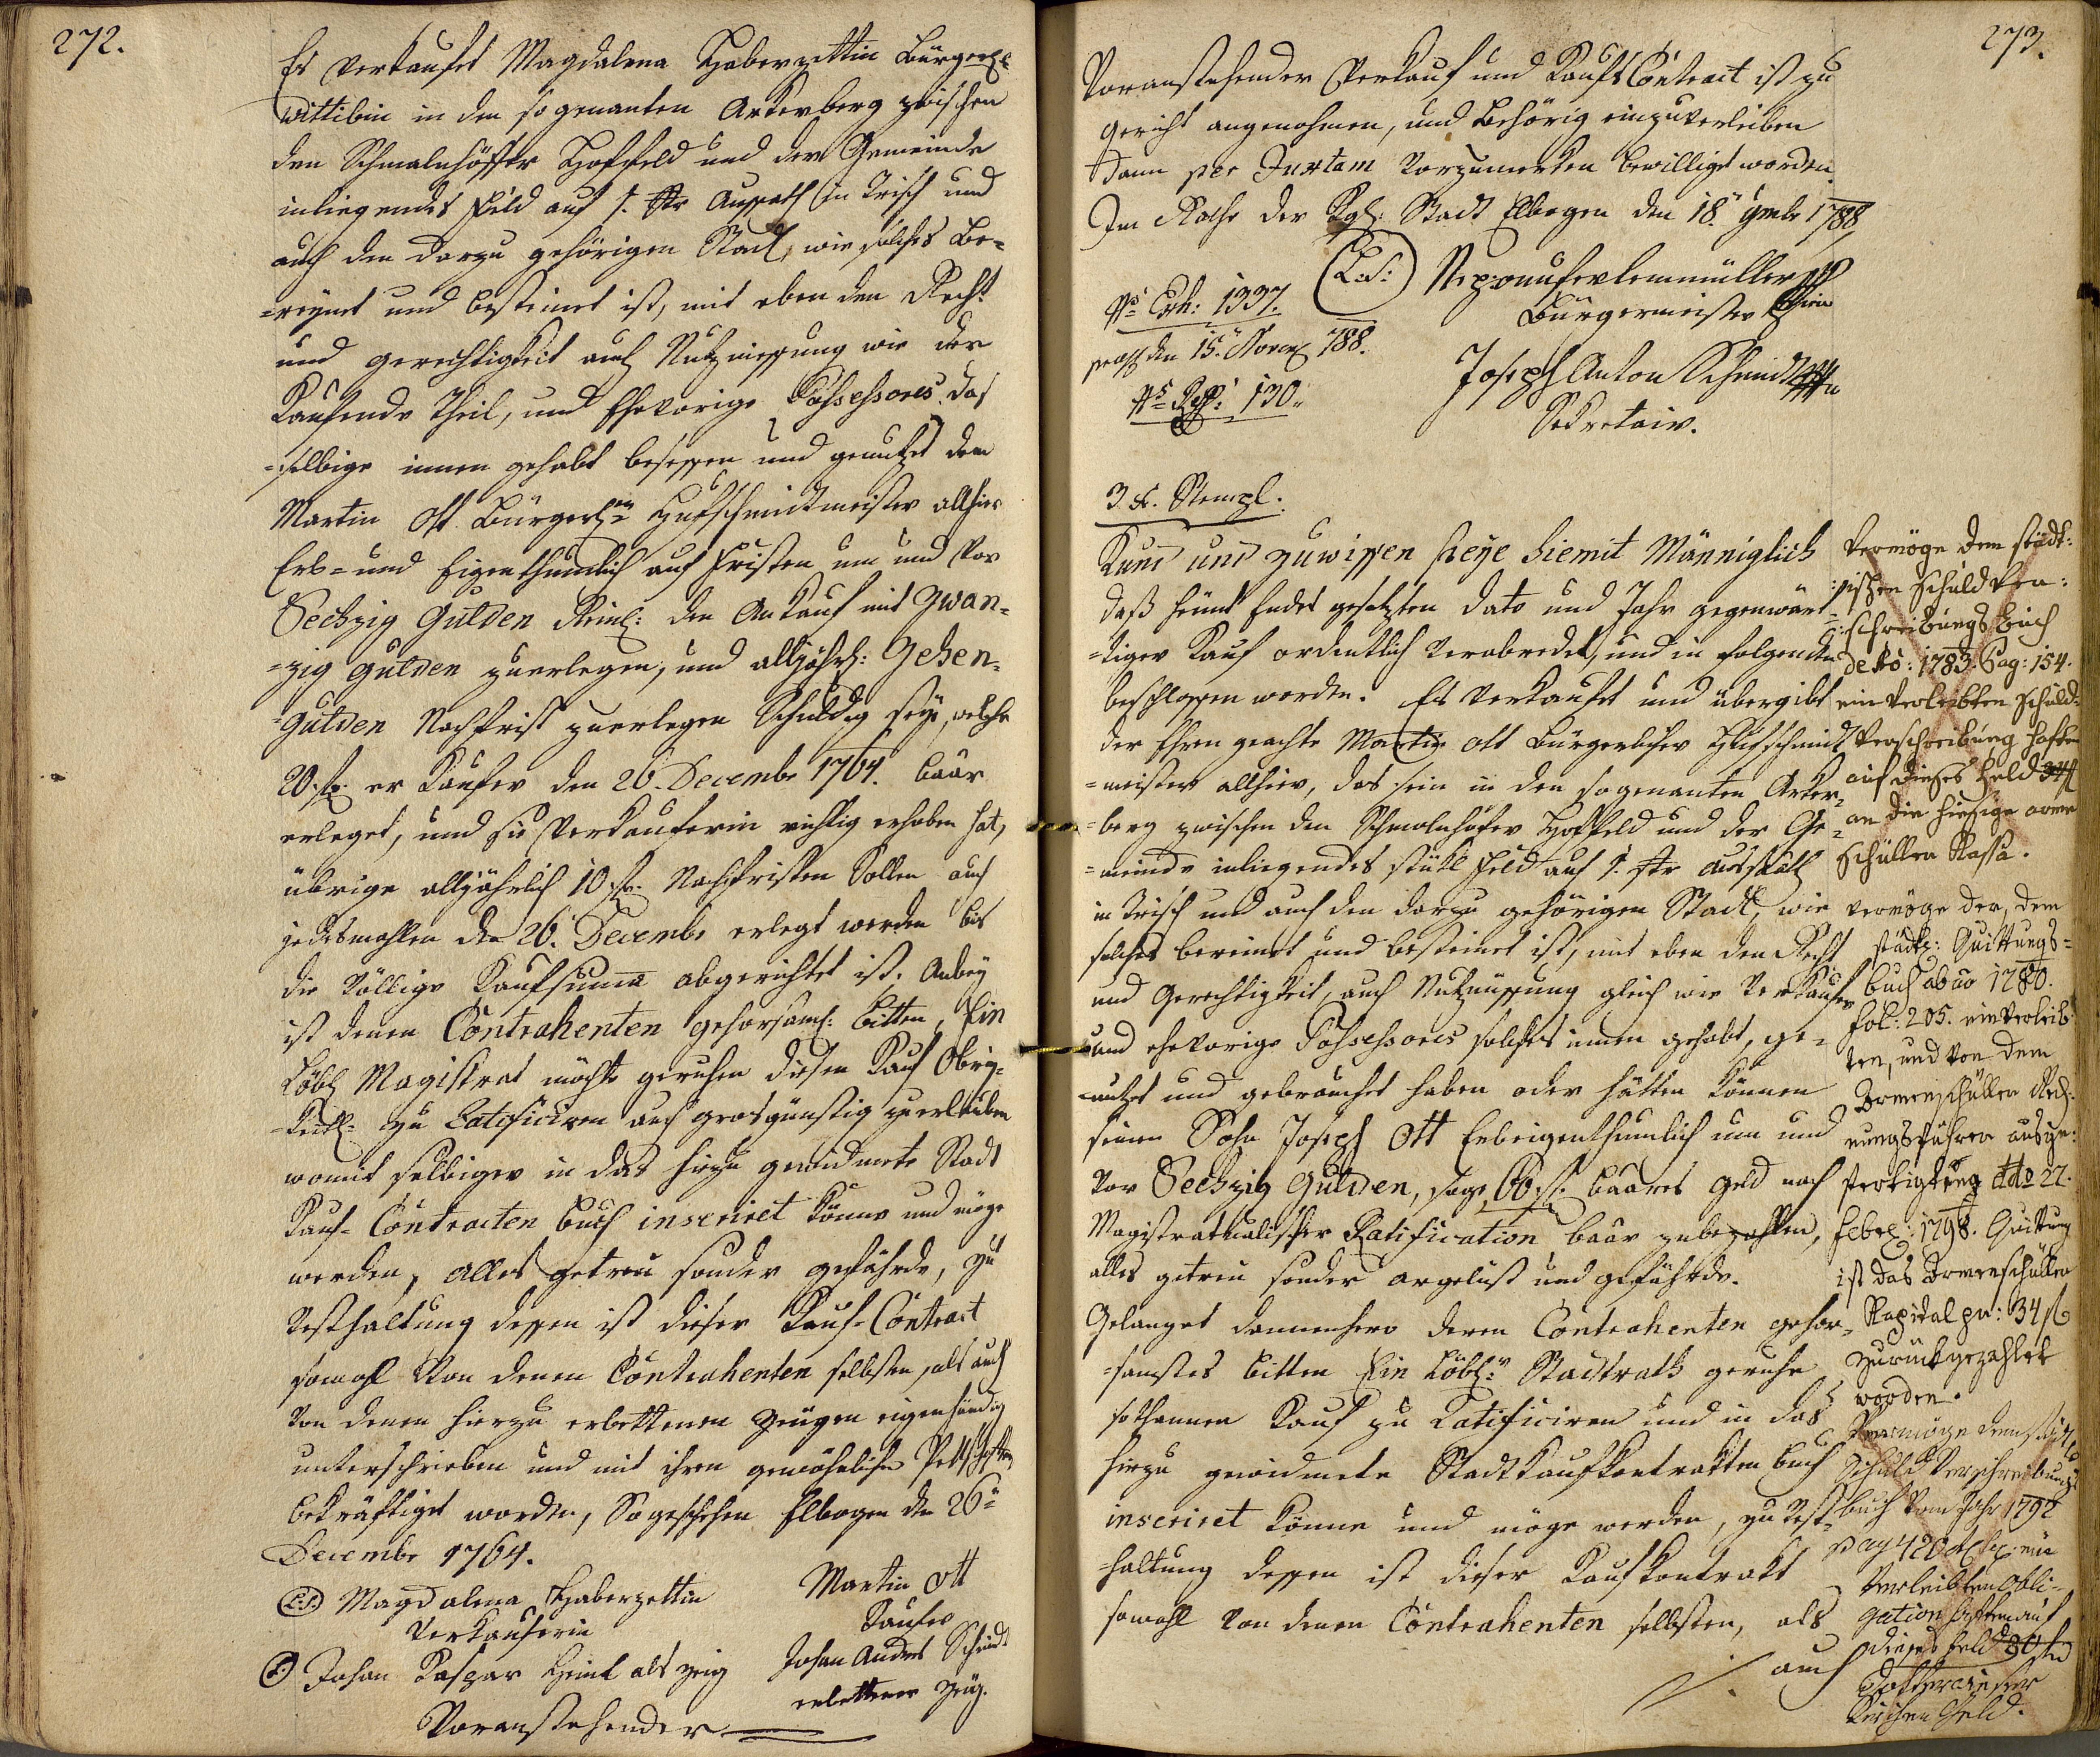 272.
Es verkaufet Magdalena Haberzettin Bürgerl:
Wittibin in den so genanten Ackerberg zwischen
den Schmalnhöffer Hoffeld und der Gemeinde
inliegendes Feld auf 1. Str Aussath in Trisch und
auch den darzu gehörigen Stadl, wie solches be=
=reynet und besteinet ist, mit eben den Recht
und gerechtigkeit auch Nutzniessung wie der
Kaufende Theil, und Ehevorige Possessores das
=selbige innen gehabt besessen und genutzet dem
Martin Ott Bürgerl:en Hufschmidtmeister allhier
Erb= und Eigenthumlich auf Fristen um und vor
Sechzig Gulden Reinl: den Ankauf mit Zwan=
=zig gulden zuerlegen, und alljährl: Zehen=
=gulden Nachfrist zuerlegen Schuldig seye, welche
20. fl. er Kaufer den 26. Decembr 1764. baar
erleget, und sie Verkauferin richtig erhoben hat,
übrige alljährlich 10 fl. Nachfristen Sollen auch
jedesmahlen den 26. Decembr erlegt werden bis
die völlige Kaufsuma abgerichtet ist. Anbey
ist denen Contrahenten gehorsaml: bitten, Ein
Löbl Magistrat möchte geruhen diesen Kauf Obrig=
=keitl: zu Ratificiren auch grosgünstig zu erlauben
womit selbiger in das hirzu gewidmete Stadt
Kauf-Contracten buch inseriret könne und möge
werden, alles getreu sonder gefährde, zu
Vesthaltung dessen ist dieser Kauf-Contract
sowohl von denen Contrahenten selbsten, als auch
von denen hierzu erbettenen Zeugen eigenhändig
unterschrieben und mit ihren gewöhnlichen Pettschaften
bekräftiget worden, So geschehen Elbogen den 26:ten
Decembr 1764.
(L.S.) Magdalena Haberzettin
Verkauferin
Martin Ott
Kaufer
Johan Kaspar Heinl als Zeig
Johan Andres Schmidt
erbettener Zeug.
Voranstehender
273.
Voranstehender Verkauf und Kaufs Contract ist zu
Gericht angenohmen, und Behörig einzuverleiben
dann per Juxtam vorzumerken bewilliget worden.
Im Rathe der Kgl: Stadt Elbogen den 18. 9mbr 1788
(L:S:)
Bürgermeister
No Exh: 1337.
praes den 15. Novemb 788.
No Rss: 130.
Joseph Anton Schmidt
Sekretair.
3 x. Stempl.
Kund und zuwissen seye hiemit Männiglich
daß heunt Endes gesetzten dato und Jahr gegenwärt=
=tiger Kauf ordentlich verabredet, und in folgenden
beschlossen worden. Es verkaufet und übergibt
der Ehren geachte Martin Ott Bürgerlicher Hufschmidt
=meister allhier, das sein in den sogenanten Acker=
=berg zwischen den Schmalnhofer Hoffeld und der Ge=
=meinde inliegendes stükl Feld auf 1. Str aussaath
in Trisch und auch den darzu gehörigen Stadl, wie
solches bereinet und besteinet ist, mit eben den Recht
und Gerechtigkeit, auch Nutznüssung gleich wie Verkaufer
und ehevorige Possessores solches innen gehabt, ge=
=nutzet und gebrauchet haben oder hätten können
seinen Sohn Joseph Ott Erbeigenthumlich um und
vor Sechzig Gulden, sage 60 fl. baares geld nach
Magistratualischer Ratification baar zubezahlen,
alles getreu sonder argelist und gefährde.
Gelanget dannenhero deren Contrahenten gehor=
=samstes bitten Ein Löbl: Stadtrath geruhe
sothannen Kauf zu Ratificiren und in das
hirzu gewidmete Stadtkaufkontrakten buch
inseriret könne und möge werden, zu Vest=
=haltung dessen ist dieser Kaufkontrakt
sowohl von denen Contrahenten selbsten, als
auch
Vermöge dem städt:
:ischen Schuldver:
:schreibungs buch
de Ao: 1783. Pag: 154.
einverleibten Schuld=
Verschreibung haften
auf dieses Feld 34 fl
an die hiesige armen
Schüllen Kassa.
vermöge der, dem
städt: Quittungs=
buch ab ao 1780.
fol: 205. einverleib=
ten, und von dem
Armenschüllen Rech=
nungsführer ausge=
fertigten dto 22.
Febr: 1798. Quittung
ist das Armenschüllen
Kapital pr: 34 fl
zurückgezahlet
worden.
Vermöge dem städt
Schuld Verschreibungs
buch vom Jahr 1792
pag 420 ein
verleibten Obli=
gation haften auf
dieses Feld 30 fl
Kirchen Geld.